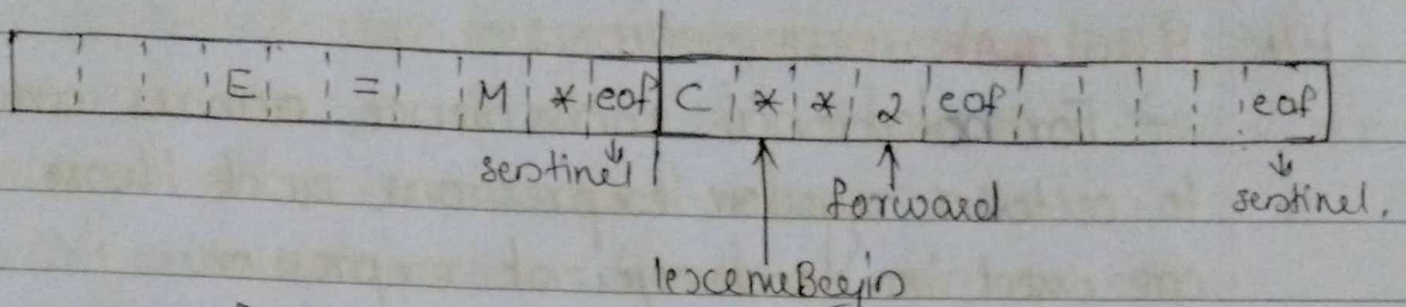 E = M * eof C * * 2 eof eof
sentinel forward sentinel.
lexemeBegin